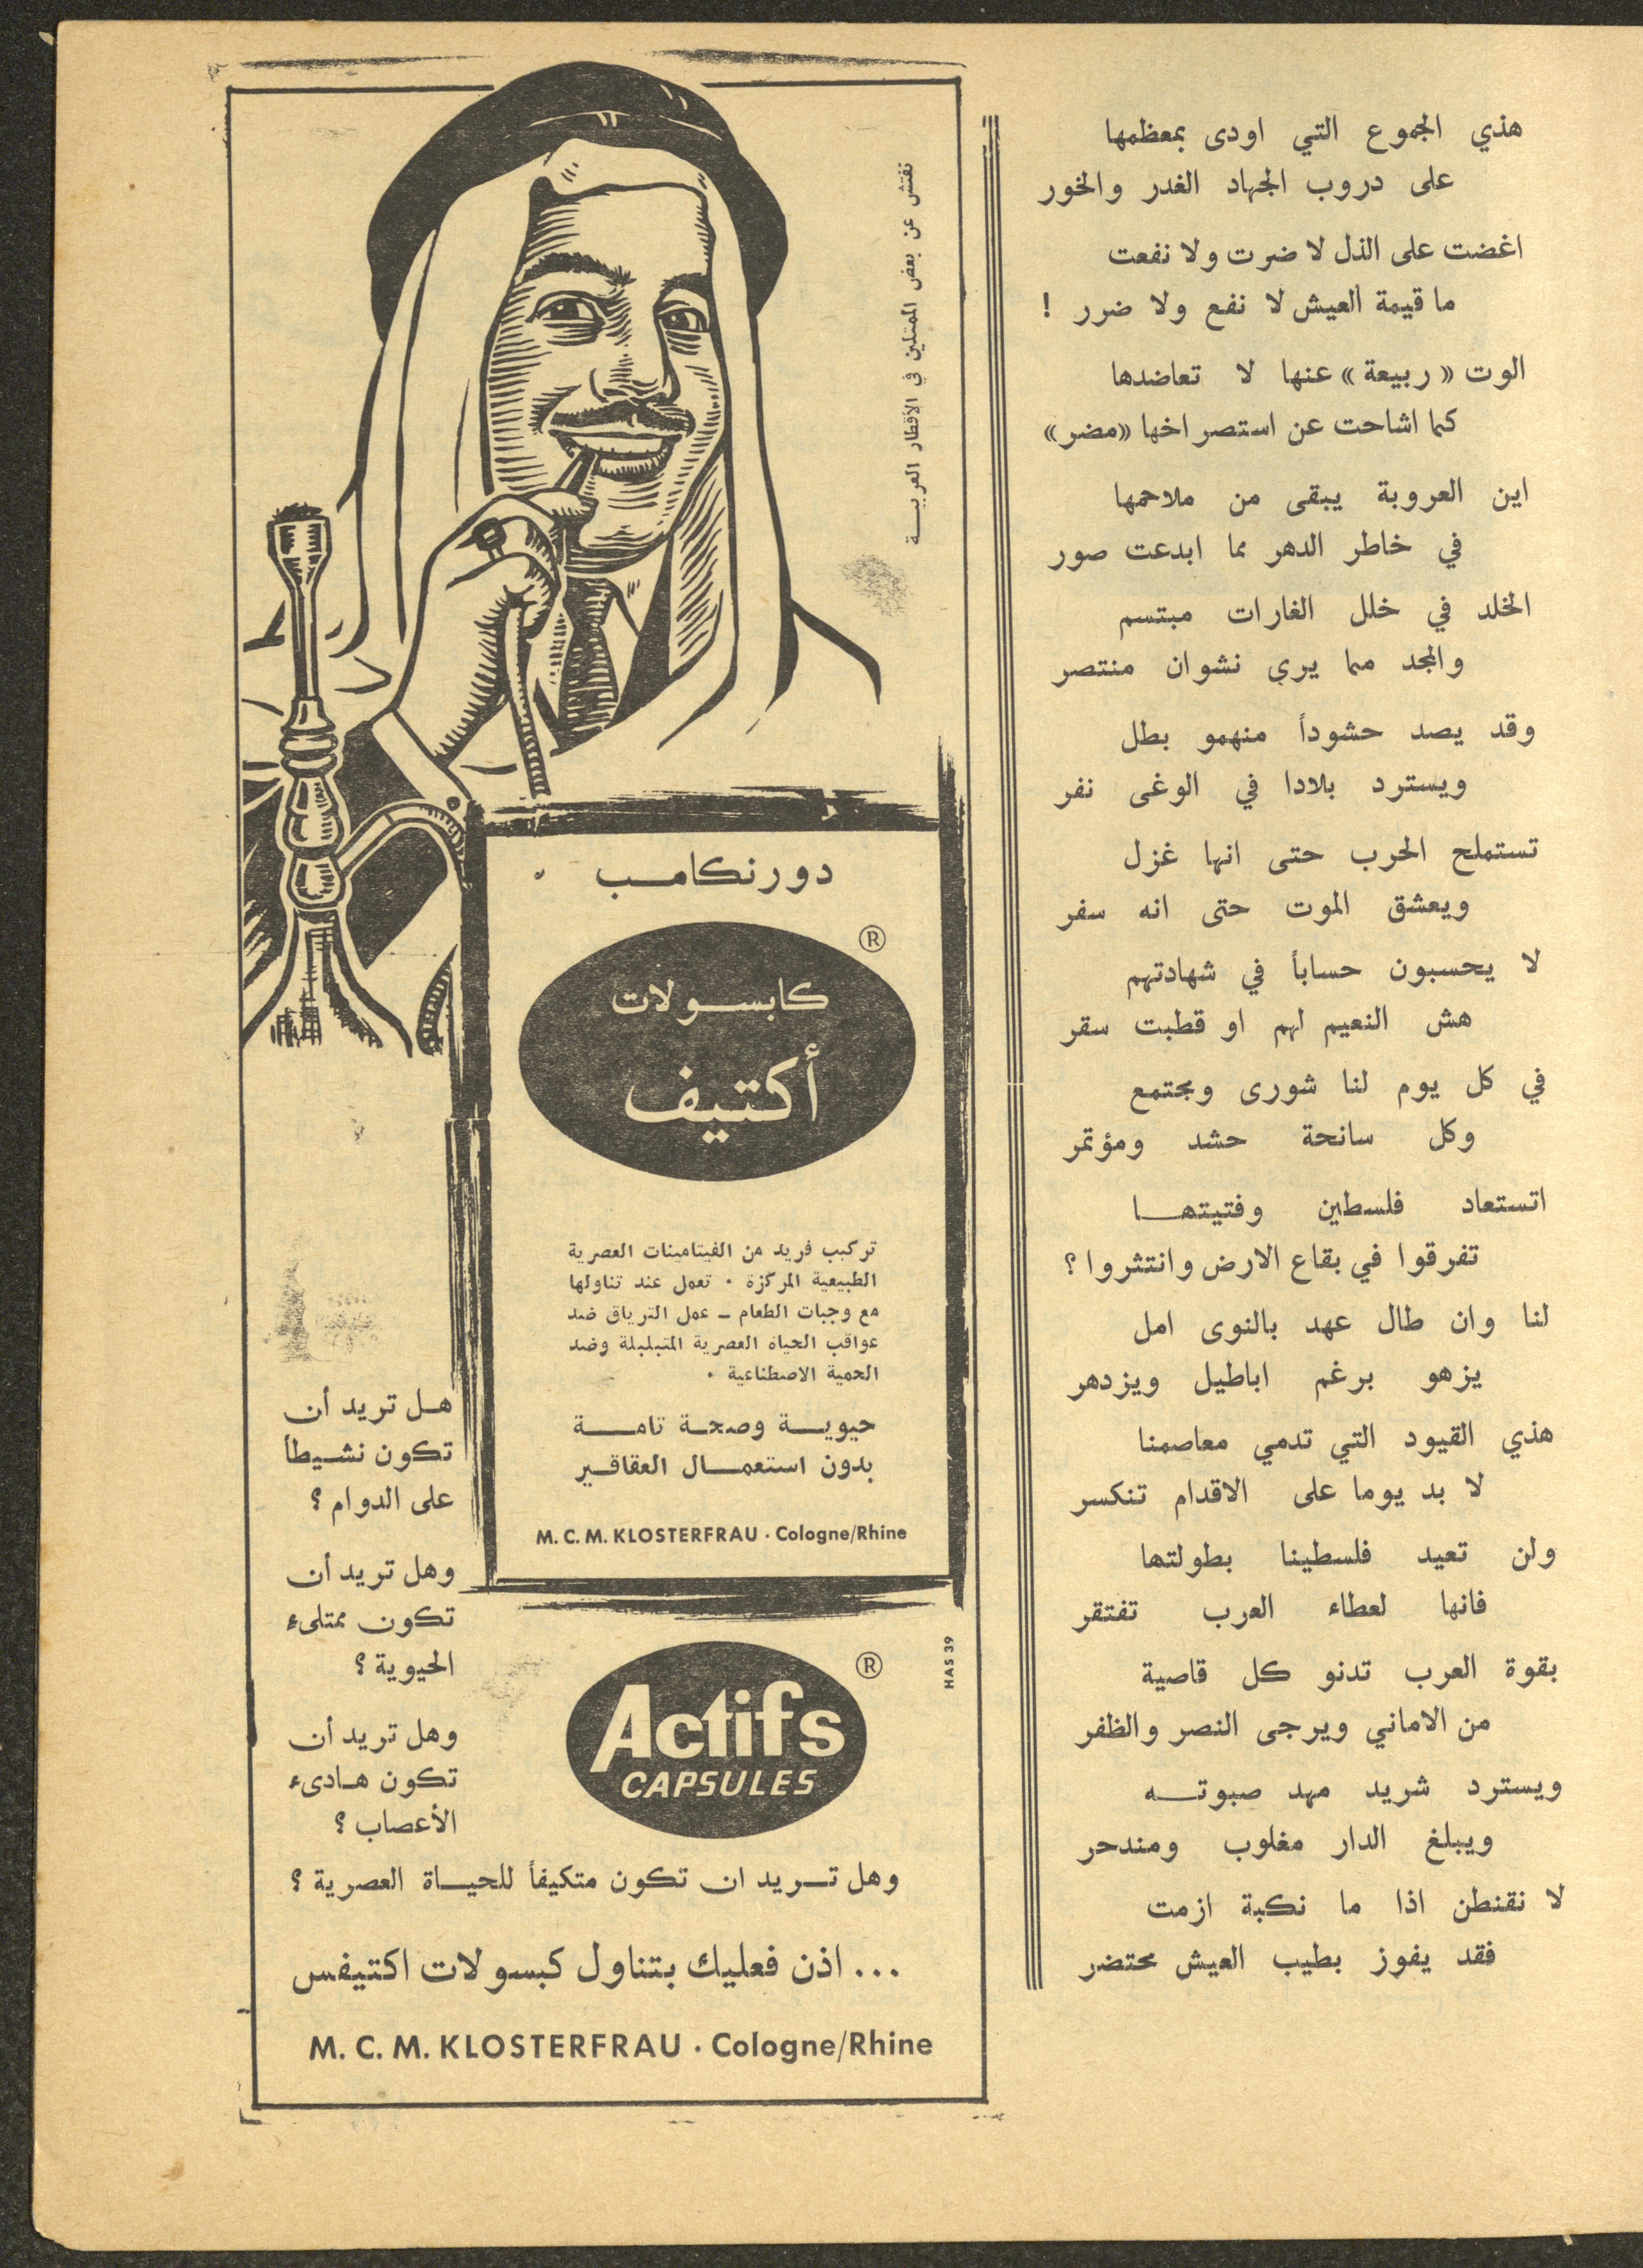 هذي الجموع التي اودى بمعظمها
على دروب الجهاد الغدر والخور
اغضت على الذل لا ضرت ولا نفعت
ما قيمة العيش لا نفع ولا ضرر !
الوت «ربيعة» عنها لا تعاضدها
كما اشاحت عن استصراخها «مضر»
اين العروبة يبقى من ملاحمها
في خاطر الدهر مما ابدعت صور
الخلد في خلل الغارات مبتسم
والمجد مما يرى نشوان منتصر
وقد يصد حشوداً منهمو بطل
ويسترد بلادا في الوغى نفر
تستملح الحرب حتى انها غزل
ويعشق الموت حتى انه سفر
لا يحسبون حساباً في شهادتهم
هش النعيم لهم او قطبت سقر
في كل يوم لنا شورى ومجتمع
وكل سانحة حشد ومؤتمر
اتستعاد فلسطين وفتيتهـا
تفرقوا في بقاع الارض وانتثروا ؟
لنا وان طال عهد بالنوى امل
يزهو برغم اباطيل ويزدهر
هذي القيود التي تدمي معاصمنا
لا بد يوما على الاقدام تنكسر
ولن تعيد فلسطينا بطولتها
فانها لعطاء العرب تفتقر
بقوة العرب تدنو كل قاصية
من الاماني ويرجى النصر والظفر
ويسترد شريد مهد صبوتـه
ويبلغ الدار مغلوب ومندحر
لا نقنطن اذا ما نكبة ازمت
فقد يفوز بطيب العيش محتضر
نفتش عن بعض الممثلين في الأقطار العربيـة
دورنكامـب
®
كابسـولات
أكتيف
تركيب فريد من الفيتامينات العصرية
الطبيعية المركزة . تعمل عند تناولها
مع وجبات الطعام – عمل الترياق ضد
عواقب الحياة العصرية المتبلبلة وضد
الحمية الاصطناعية .
حيويـة وصحـة تامـة
بدون استعمـال العقاقـير
M. C. M. KLOSTERFRAU · Cologne/Rhine
هـل تريد أن
تكون نشـيطاً
على الدوام ؟
وهل تريد أن
تكون ممتلىء
الحيوية ؟
وهل تريد أن
تكون هـادىء
الأعصاب ؟
HAS 39
®
Actifs
CAPSULES
وهل تـريد ان تكون متكيفاً للحيـاة العصرية ؟
... اذن فعليك بتناول كبسولات اكتيفس
M. C. M. KLOSTERFRAU · Cologne/Rhine